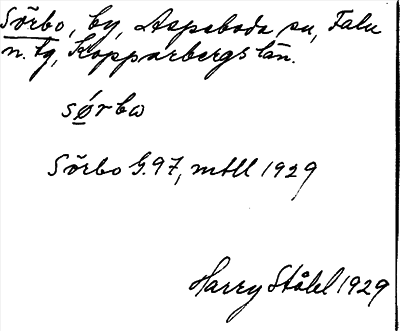 Sörbo, by, Aspeboda sn, Falu
n. tg, Kopparbergs län.
sø̀rbω
Sörbo G.97, mtll 1929
Harry Ståhl 1929